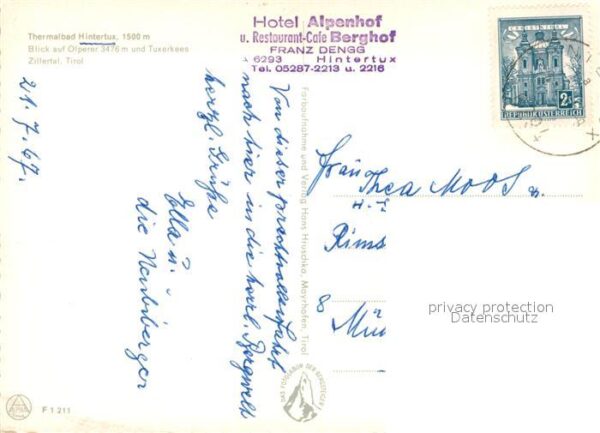 Thermalbad Hintertux, 1500 m
Blick auf Olperer 3476 m und Tuxerkees
Zillertal, Tirol
Hotel Alpenhof
u. Restaurant-Cafe Berghof
FRANZ DENGG
6293 Hintertux
Tel. 05287-2213 u. 2216
REPUBLIK ÖSTERREICH
21.7.67.
Von dieser prachtvollen Fahrt
nach hier in die herrl. Bergwelt
herzl. Grüße
Ella u.
die
Farbaufnahme und Verlag Hans Hruschka, Mayrhofen, Tirol
Frau
Thea Moos
Rims
8 Mü
privacy protection
Datenschutz
F 1211